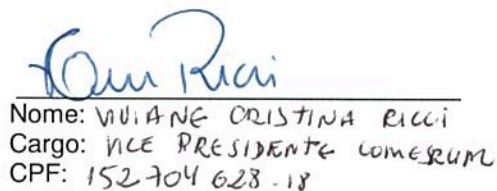 Nome: VIVIANE CRISTINA RICCI
Cargo: VICE PRESIDENTE COMESRUM
CPF: 152 704 628 - 18